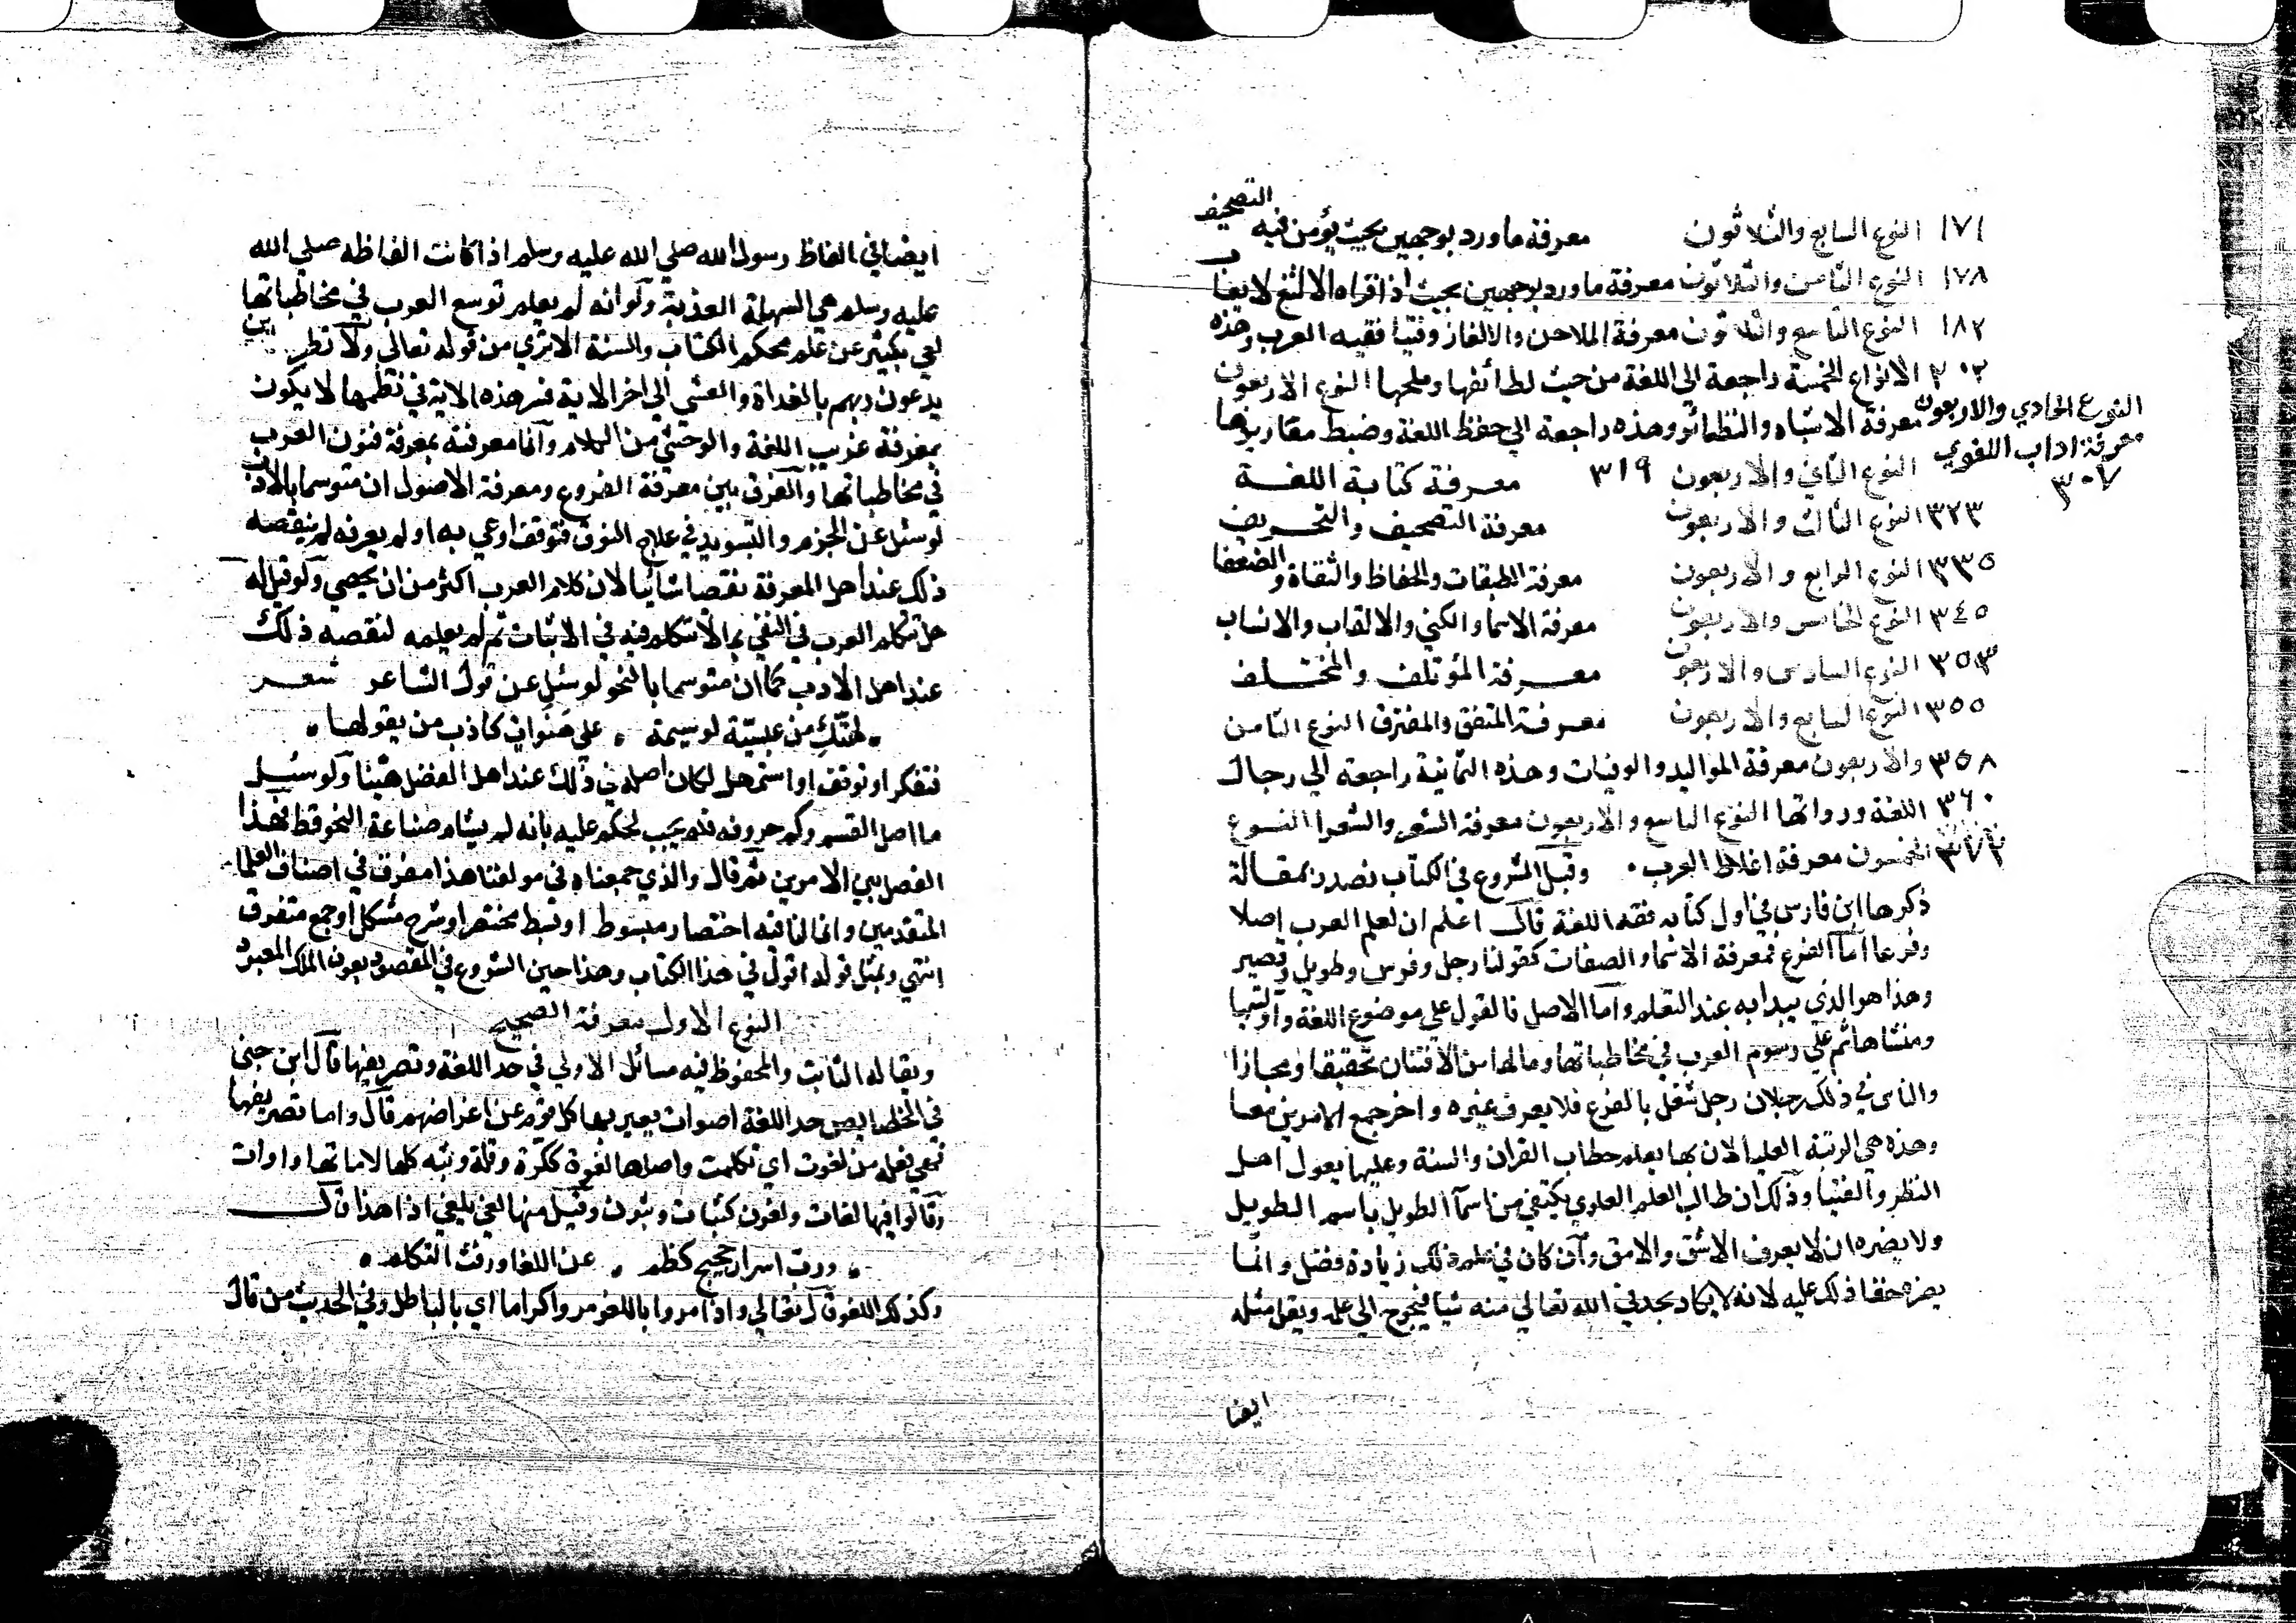 ١٧١ النوع السابع والثلاثون معرفة ما ورد بوجهين بحيث يؤمن فيه التصحيف
١٧٨ النوع الثامن والثلاثون معرفة ما ورد بوجهين بحيث اذا قراه الالثغ لا يعاب
١٨٢ النوع التاسع والثلاثون معرفة الملاحن والالغاز وفتيا فقيه العرب وهذه
٢٠٢ الانواع الخمسة راجعة الي اللغة من حيث لطائفها وملحها النوع الاربعون
معرفة الاشباه والنظائر وهذه راجعة الي حفظ اللغة وضبط مقاربها
النوع الحادي والاربعون
معرفة اداب اللغوي
٣٠٧
النوع الثاني والاربعون ٣١٩ معرفة كتابة اللغة
٣٢٣ النوع الثالث والاربعون معرفة التصحيف والتحريف
٣٣٥ النوع الرابع والاربعون معرفة الطبقات والحفاظ والثقاة والضعفا
٣٤٥ النوع الخامس والاربعون معرفة الاسما والكني والالقاب والانساب
٣٥٣ النوع السادس والاربعون معرفة المؤتلف والمختلف
٣٥٥ النوع السابع والاربعون معرفة المتفق والمفترق النوع الثامن
٣٥٨ والاربعون معرفة المواليد والوفيات وهذه الثمانية راجعة الي رجال
٣٦٠ اللغة ورواتها النوع التاسع والاربعون معرفة الشعر والشعرا النوع
٣٧٢ الخمسون معرفة اغلاط العرب . وقبل الشروع في الكتاب نصدر بمقالة
ذكرها ابن فارس في اول كتابه فقه اللغة قال اعلم ان لعلم العرب اصلا
وفرعا اما الفرع فمعرفة الاسما والصفات كقولنا رجل وفرس وطويل وقصير
وهذا هو الذي يبدا به عند التعلم واما الاصل فالقول علي موضوع اللغة واوليتها
ومنشاها ثم علي رسوم العرب في مخاطباتها وما لها من الافتنان تحقيقا ومجازا
والناس في ذلك رجلان رجل شغل بالفرع فلا يعرف غيره واخر جمع الامرين معا
وهذه هي الرتبة العليا لان بها يعلم خطاب القران والسنة وعليها يعول اهل
النظر والفتيا وذلك ان طالب العلم العلوي يكتفي من اسما الطويل باسم الطويل
ولا يضره ان لا يعرف الاشق والامق وان كان في علم ذلك زيادة فضل وانما
يضره خفا ذلك عليه لانه لا يكاد يجد في الله تعالي منه شيا فيحوج الي علمه ويقل مثله
ايضا
ايضا في الفاظ رسول الله صلي الله عليه وسلم اذا كانت الفاظه صلي الله
عليه وسلم هي السهلة العذبة ولو انه لم يعلم توسع العرب في مخاطباتها
لعي بكثير من علم محكم الكتاب والسنة الا تري من قوله تعالي ولا تطرد الذين
يدعون ربهم بالغداة والعشي الي اخر الاية فسر هذه الاية في نظمها لا يكون
بمعرفة غريب اللغة والوحشي من الكلام وانما معرفته بمعرفة فنون العرب
في مخاطباتها والفرق بين معرفة الفروع ومعرفة الاصول ان متوسما بالادب
لو سئل عن الجزم والتسويد في علاج النوق فتوقف او عي به او لم يعرفه لم ينقصه
ذلك عند اهل المعرفة نقصا شاينا لان كلام العرب اكثر من ان يحصي ولو قيل له
هل تتكلم العرب في النفي بما لا تتكلم فيه في الاثبات ثم لم يعلمه لنقصه ذلك
عند اهل الادب كما ان متوسما بالنحو لو سئل عن قول الشاعر شعر
. لهنك من عبسية لوسيمة . علي هنوات كاذب من يقولها .
فتفكر او توقف او استمهل لكان امره في ذلك عند اهل الفضل هينا ولو سئل
ما اصل القسم وكم حروفه فلم يجب لحكم عليه بانه لم يشام صناعة النحو قط فهذا
الفصل بين الامرين ثم قال والذي جمعناه في مولفنا هذا مفرق في اصناف العلما
المتقدمين وانما لنا فيه اختصار مبسوط او بسط مختصر او شرح مشكل او جمع متفرق
انتهي وبمثل قوله اقول في هذا الكتاب وهذا حين الشروع في المقصود بعون الملك المعبود
النوع الاول معرفة الصحيح
ويقال له الثابت والمحفوظ فيه مسائل الاولي في حد اللغة وتصريفها قال ابن جني
في الخصايص حد اللغة اصوات يعبر بها كل قوم عن اغراضهم قال واما تصريفها
فهي فعلة من لغوت اي تكلمت واصلها لغوة ككرة وقلة وثبه كلها لاماتها واوات
وقالوا فيها لغات ولغون كثبات وثبون وقيل منها لغي يلغي اذا هذا قال
. ورب اسراب حجيج كظم . عن اللغا ورفث التكلم .
وكذلك اللغو قال تعالي واذا مروا باللغو مروا كراما اي بالباطل وفي الحديث من قال